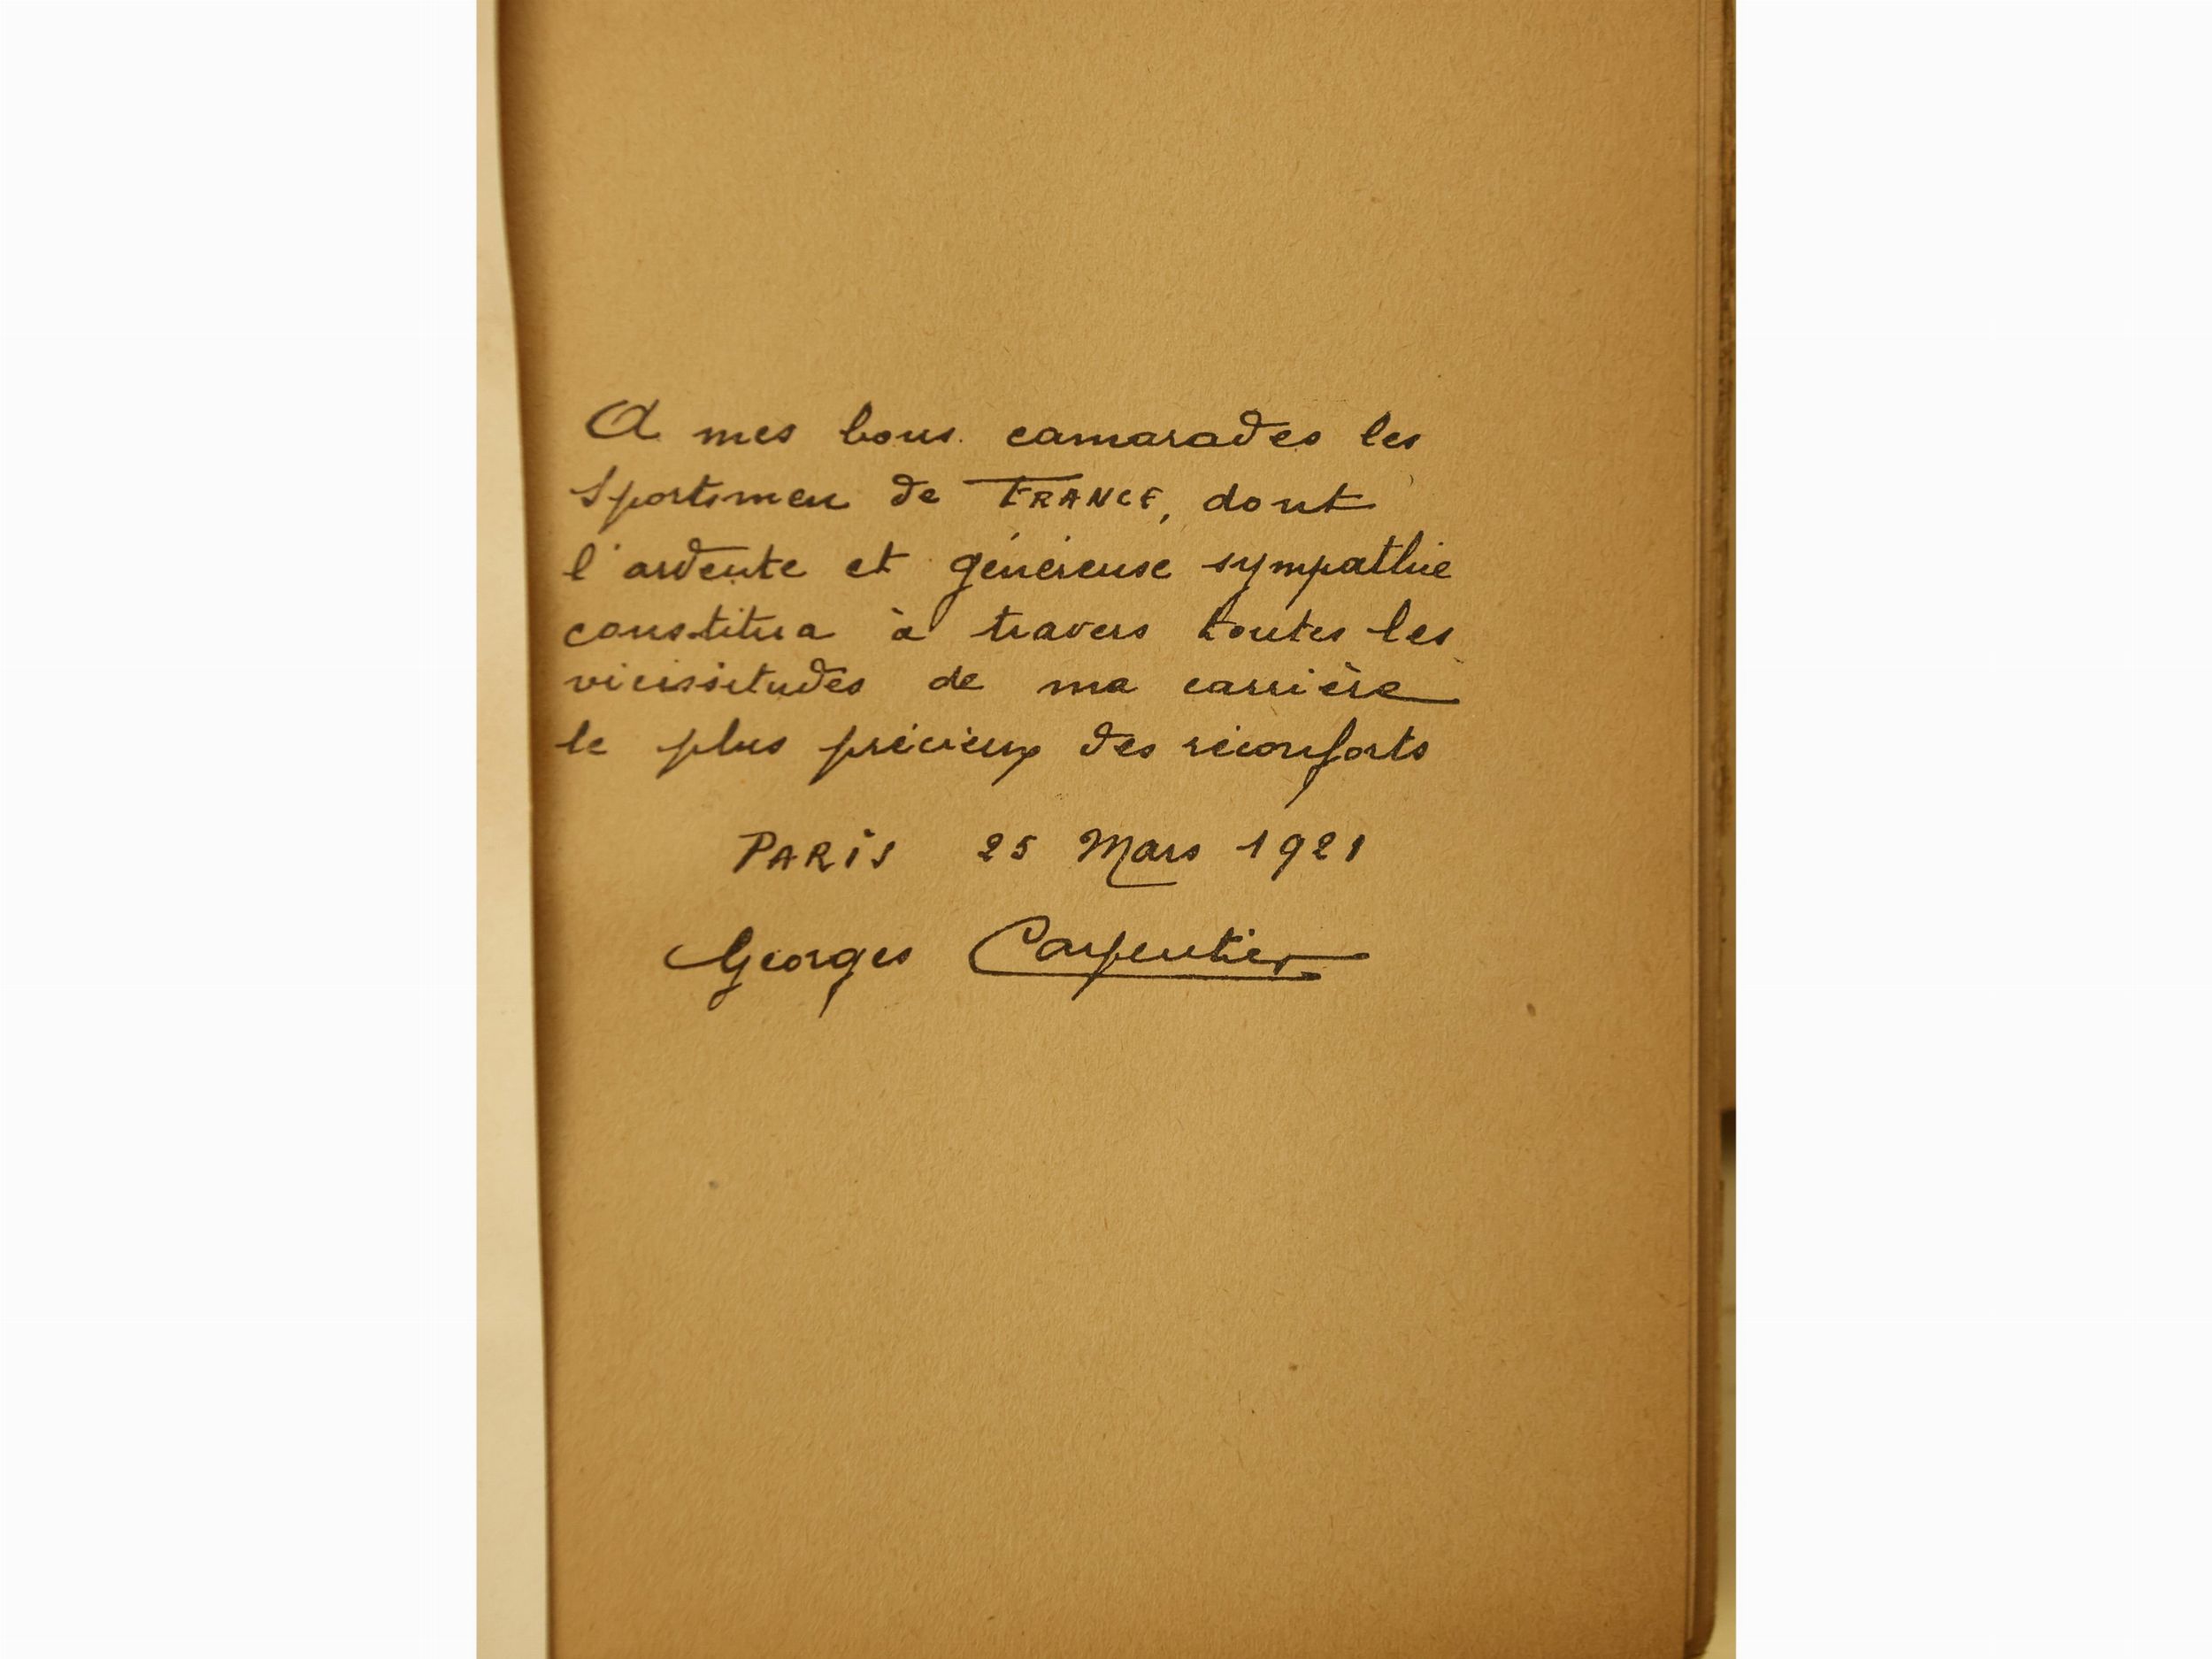 A mes bons camarades les
Sportsmen de FRANCE, dont
l'ardente et généreuse sympathie
constitua à travers toutes les
vicissitudes de ma carrière
le plus précieux des réconforts
PARIS 25 Mars 1921
Georges Carpentier